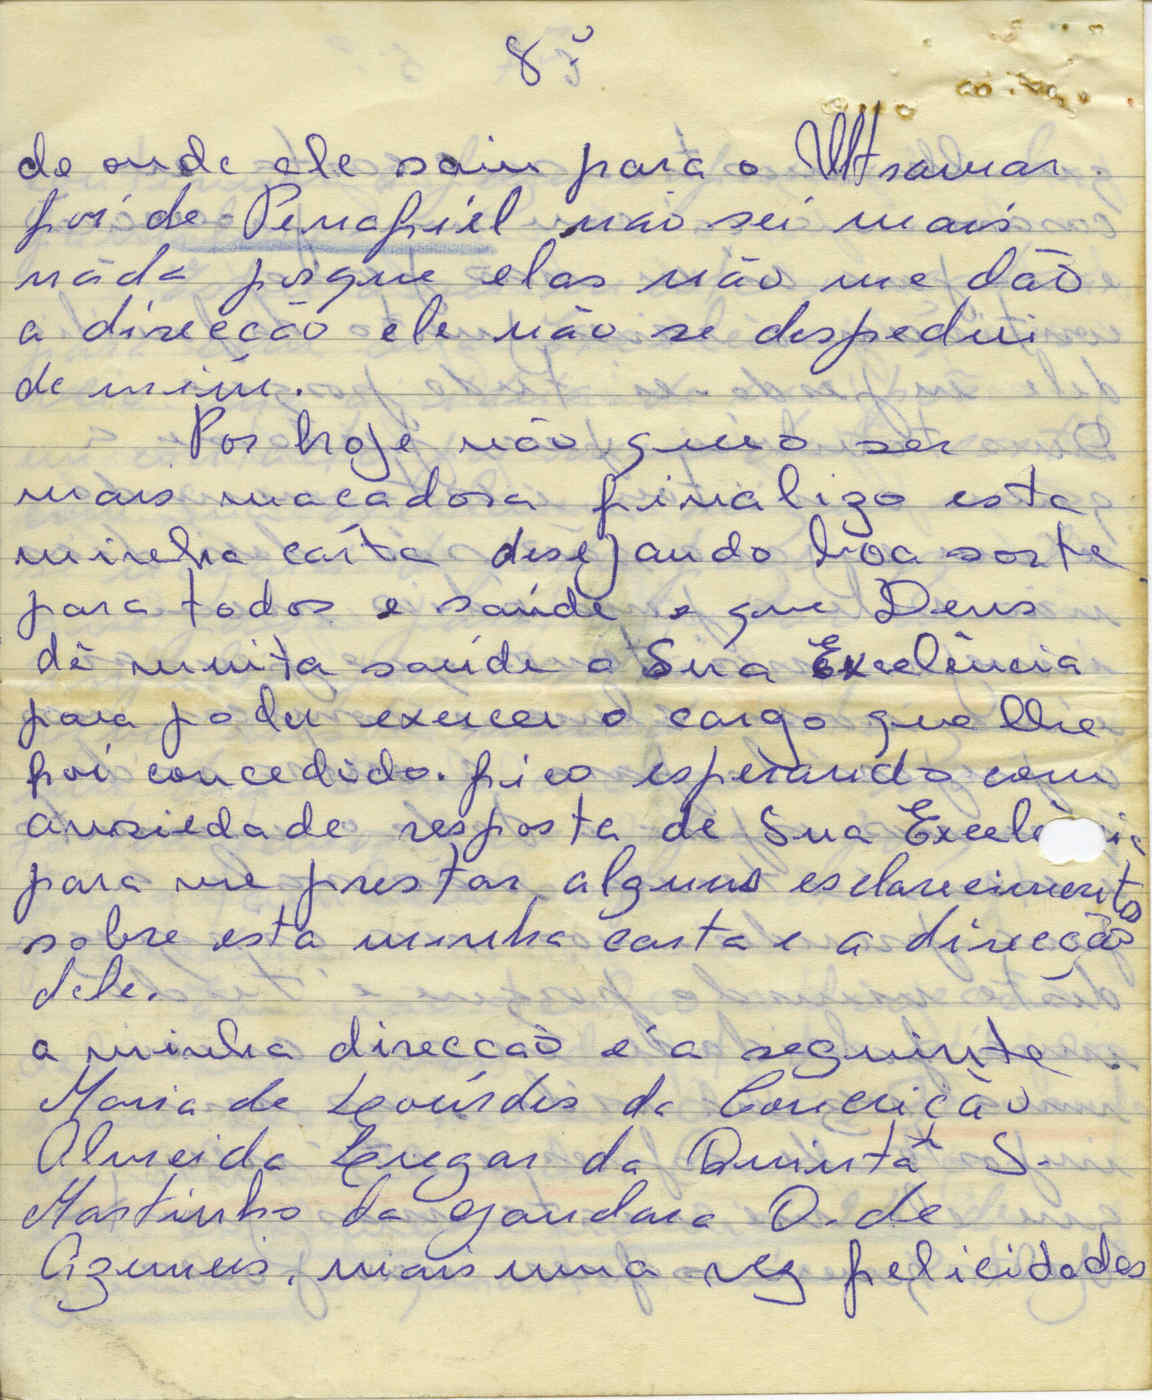 8º
de onde ele saiu para o Ultramar
foi de Penafiel não sei mais
náda porque elas não me dão
a direcção ele não se despediu
de mim.
Por hoje não quero ser
mais maçadora finalizo esta
minha carta desejando boa sorte
para todos e saúde e que Deus
dê muita saúde a Sua Excelência
para poder exercer o cargo que lhe
foi concedido. fico esperando com
anciedade resposta de Sua Excelência
para me prestar alguns esclarecimentos
sobre esta minha carta e a direcção
dele.
a minha direcção é a seguinte
Maria de Lourdes da Conceição
Almeida Lugar da Quintã S.
Martinho da gandara O. de
Azemeis. mais uma vez felicidades